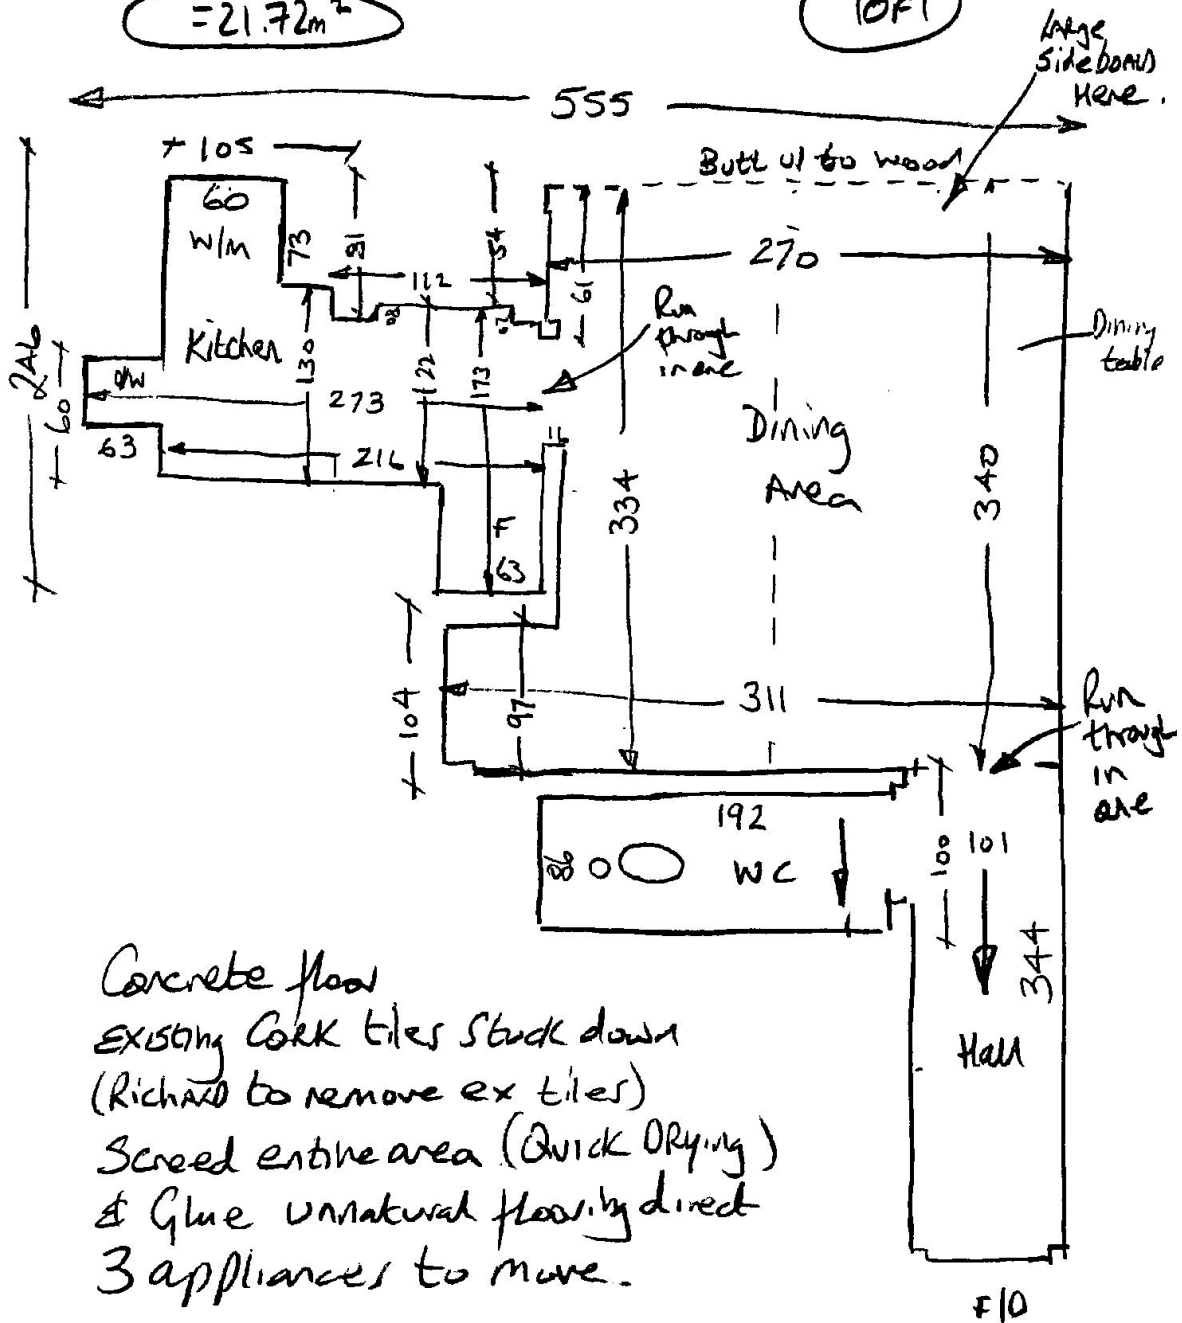 =21.72m²
1 OF 1
Large
Sideboard
Here.
555
105
Butt up to wood
60
W/M
73
81
54
61
270
112
Run
through
in one
Kitchen
130
122
173
Dining
table
246
60
D/W
273
63
216
11
Dining
Area
334
340
F
63
104
97
311
Run
through
in
one
192
86
WC
100
101
344
Hall
F/D
Concrete floor
Existing Cork tiles Stuck down
(Richard to remove ex tiles)
Screed entire area (Quick Drying)
& Glue unnatural flooring direct
3 appliances to move.